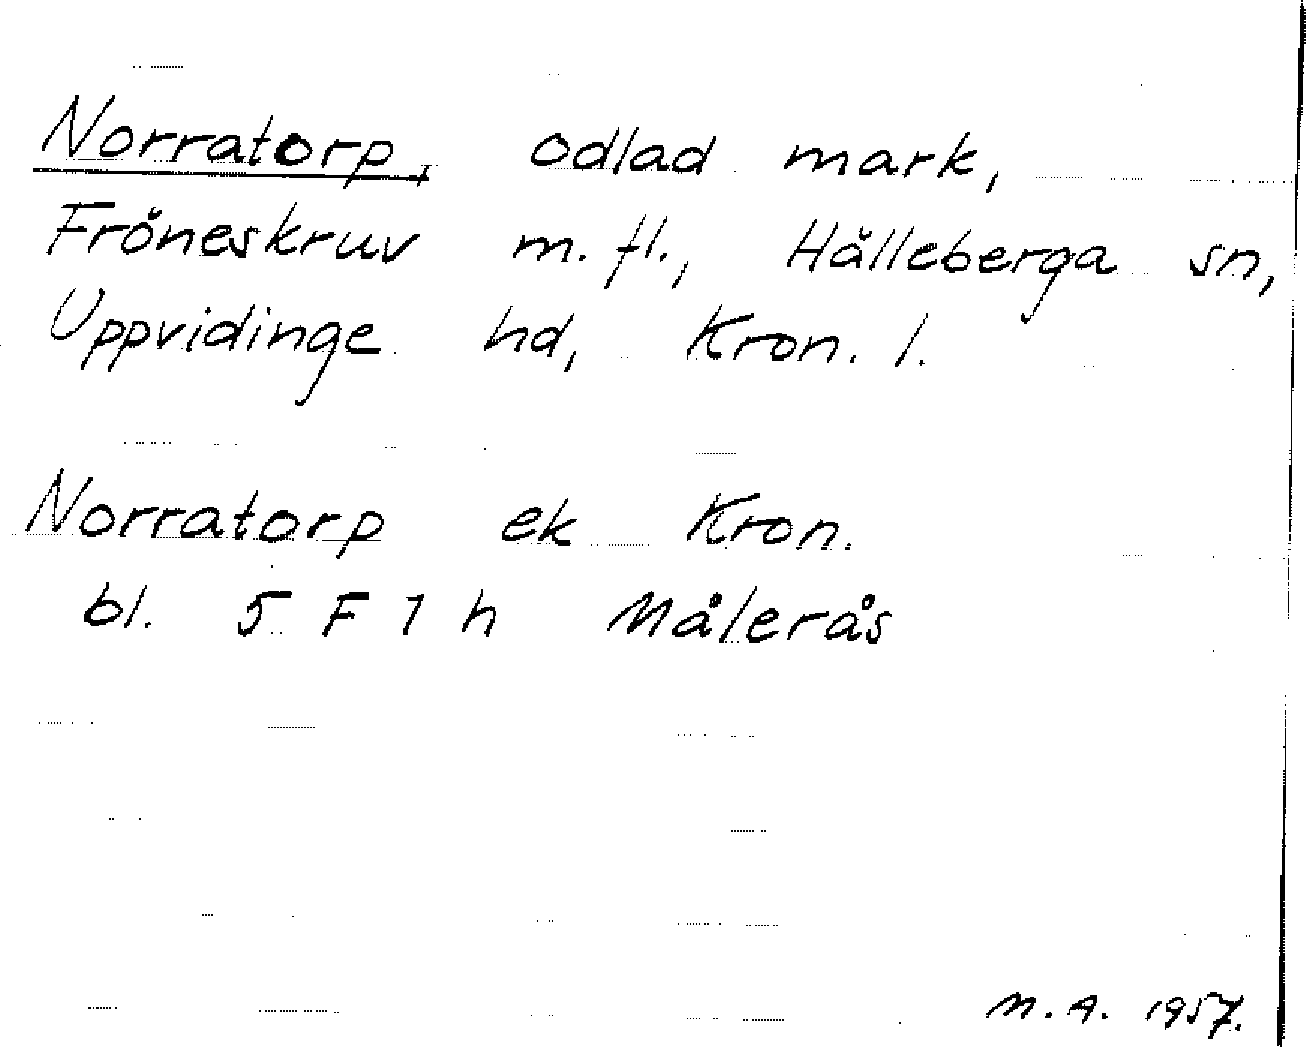 Norratorp, odlad mark,
Fröneskruv m. fl., Hälleberga sn,
Uppvidinge hd, Kron. l.
Norratorp ek Kron.
bl. 5 F 1 h Målerås
M. A. 1957.